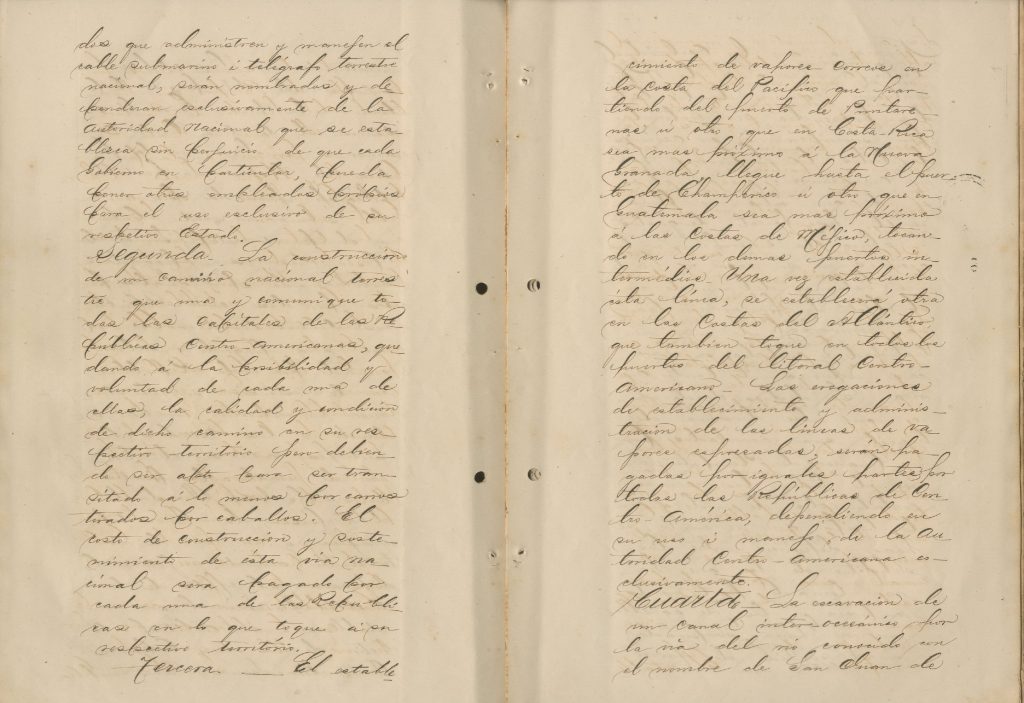 dos que administren y manejen el
cable submarino i telégrafo terrestre
nacional, serán nombrados y de
penderan esclusivamente de la
Autoridad Nacional que se esta-
blezca sin perjuicio de que cada
Gobierno en particular, pueda
poner otros empleados própios
para el uso esclusivo de su
respetivo Estado.
Segunda. La construccion
de un camino nacional terres
tre que una y comunique to-
das las Capitales de las Re
públicas Centro-americanas, que
dando á la posibilidad y
voluntad de cada una de
ellas, la calidad y condición
de dicho camino en su res-
pectivo territorio pero debien
do ser apto para ser tran-
sitado á lo menos por carros
tirados por caballos. El
costo de construccion y soste-
nimiento de ésta via na-
cional sera pagado por
cada una de las Republi-
cas en lo que toque á su
respectivo território.
Tercera — El estable
cimiento de vapores correos en
la costa del Pacífico que par-
tiendo del puerto de Puntare-
nas u otro que en Costa-Rica
sea mas próximo á la Nueva
Granada, llegue hasta el puer-
to de Champerico ú otro que en
Guatemala sea mas próximo
á las Costas de Méjico, tocan-
do en los demas puertos in-
termédios. Una vez establecida
esta línea, se establecerá otra
en las Costas del Atlántico
que tambien toque en todos los
puertos del litoral Centro-
Americano — Las erogaciones
de establecimiento y adminis-
tración de las lineas de va
pores espresadas, serán pa-
gadas por iguales partes por
todas las Repúblicas de Cen
tro-América, dependiendo en
su uso i manejo, de la Au-
toridad Centro-americana es-
clusivamente.
Cuarta — La escavación de
un canal inter-oceánico por
la via del rió conocido con
el nombre de San Juan de